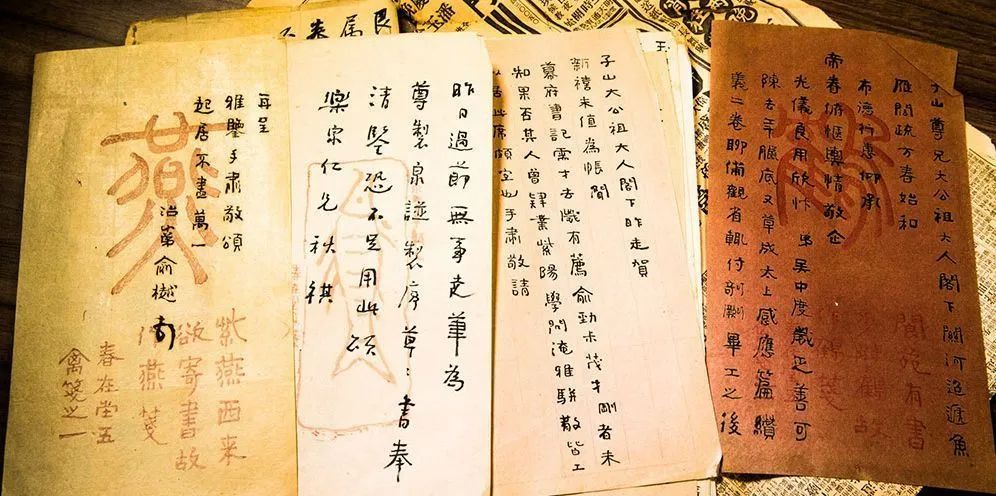 子山尊兄大公祖大人閣下關河迢遞魚
雁闊疏方春始和
布德行惠仰承
帝眷俯愜輿情敬企
光儀良用欣忭弟吳中度歲正善可
陳去年臘底又草成太上感應篇纘
義二卷聊備觀省輒付剞劂畢工之後
閬苑有書
鶴
子山大公祖大人閣下昨走賀
新禧未值為悵聞
幕府書記需才去歲有薦俞勁木茂才剛者未
知果否其人曾肄業紫陽學問淹雅駢散皆工
以居此席頗宜此手肅敬請
昨日過節無事走筆為
尊製泉譜製序草草書奉
清鑒恐不足用此頌
樂宋仁兄秋祺
再呈
雅鑒手肅敬頌
起居不盡萬一
治弟俞樾
燕
紫燕西来
欲寄書故
作燕箋
春在堂五
禽箋之一